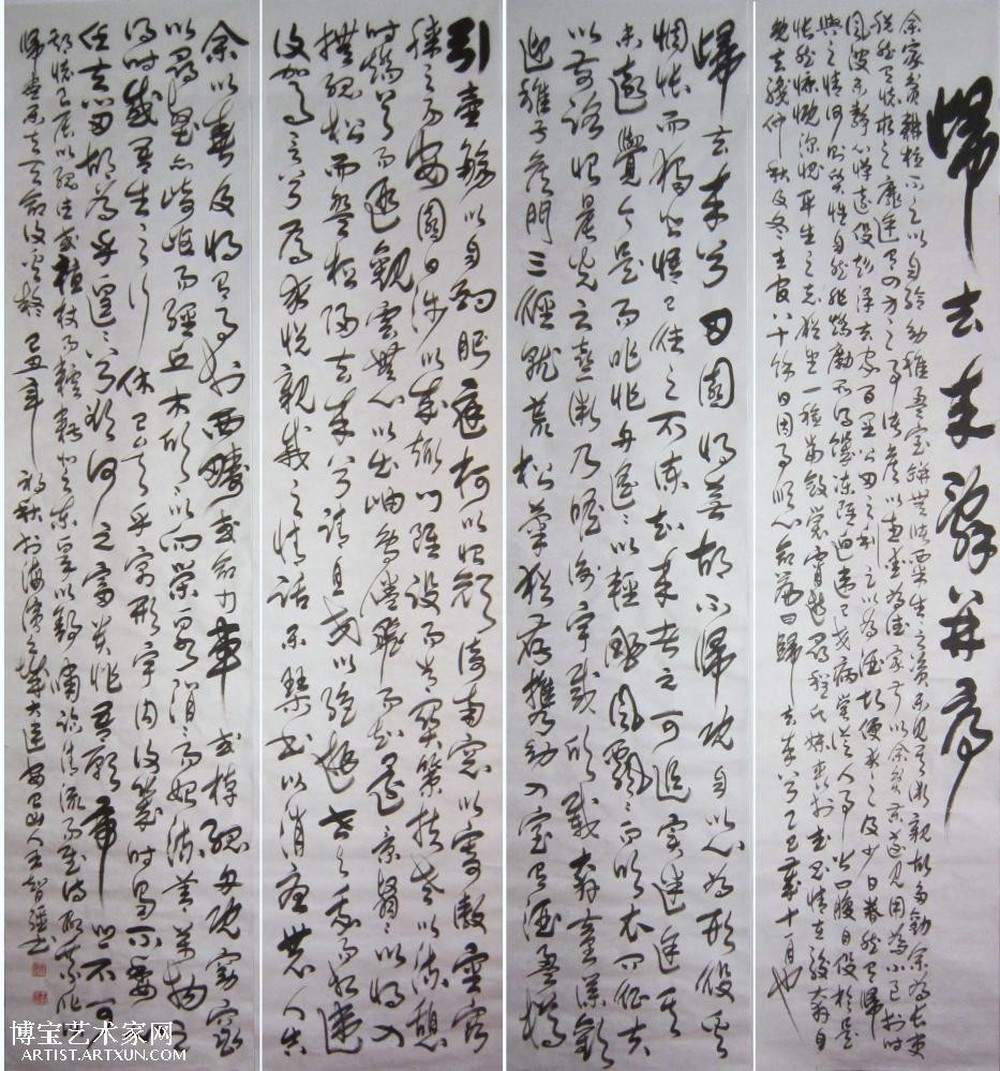 歸去來辭并序
余家貧耕植不足以自給幼稚盈室缾無儲粟生生所資未見其術親故多勸余為長吏
脫然有懷求之靡途會有四方之事諸侯以惠愛為德家叔以余貧苦遂見用為小邑于時
風波未靜心憚遠役彭澤去家百里公田之利足以為酒故便求之及少日眷然有歸
與之情何則質性自然非矯勵所得饑凍雖切違己交病嘗從人事皆口腹自役於是
悵然慷慨深愧平生之志猶望一稔當斂裳宵逝尋程氏妹喪于武昌情在駿奔自
免去職仲秋至冬在官八十餘日因事順心命篇曰歸去來兮乙巳歲十一月也
歸去來兮田園將蕪胡不歸既自以心為形役奚
惆悵而獨悲悟已往之不諫知來者之可追實迷途其
未遠覺今是而昨非舟遙遙以輕颺風飄飄而吹衣問征夫
以前路恨晨光之熹微乃瞻衡宇載欣載奔僮僕歡
迎稚子候門三徑就荒松菊猶存攜幼入室有酒盈樽
引壺觴以自酌眄庭柯以怡顏倚南窗以寄傲審容
膝之易安園日涉以成趣門雖設而常關策扶老以流憩
時矯首而遐觀雲無心以出岫鳥倦飛而知還景翳翳以將入
撫孤松而盤桓歸去來兮請息交以絕遊世與我而相違
復駕言兮焉求悅親戚之情話樂琴書以消憂農人告
余以春及將有事於西疇或命巾車或棹孤舟既窈窕
以尋壑亦崎嶇而經丘木欣欣以向榮泉涓涓而始流善萬物之
得時感吾生之行休已矣乎寓形宇內復幾時曷不委
任去留胡為乎遑遑兮欲何之富貴非吾願帝鄉不可
期懷良辰以孤往或植杖而耘耔登東皋以舒嘯臨清流而賦詩聊乘化以
歸盡樂夫天命復奚疑 己丑年初秋於海濱之城大連 山人王智 書
博宝艺术家网
ARTIST.ARTXUN.COM